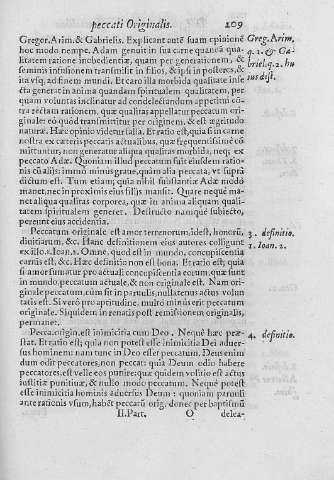 peccati Originalis. 209
Gregor. Arim. & Gabrielis. Explicant autē suam opinionē
hoc modo nempe. Adam genuit in sua carne quandā qua-
litatem ratione inobedientiæ, quam per generationem, &
seminis infusionem transmisit in filios, & ipsi in posteros, &
ita vsq. ad finem mundi. Et caro illa morbida qualitate infe-
cta generat in anima quandam spiritualem qualitatem, per
quam voluntas inclinatur ad condelectandum appetitui cō-
tra rectam rationem, quæ qualitas appellatur peccatum ori-
ginale: eo quòd transmittitur per originem, & est ægritudo
naturæ. Hæc opinio videtur falsa. Et ratio est, quia si in carne
nostra ex cæteris peccatis actualibus, quæ frequentissimè cō-
mittuntur, non generatur aliqua qualitas morbida, neq; ex
peccato Adæ. Quoniam illud peccatum fuit eiusdem ratio-
nis cū alijs: immò minus graue, quàm alia peccata, vt suprà
dictum est. Tum etiam, quia nihil substantiæ Adæ modò
manet, nec in proximis eius filijs mansit. Quare nequè ma-
net aliqua qualitas corporea, quæ in anima aliquam quali-
tatem spiritualem generet. Destructo namque subiecto,
pereunt eius accidentia.
Peccatum originale est amor terrenorum, idest, honorū,
diuitiarum, &c. Hanc definitionem eius autores colligunt
ex illo 1. Ioan. 2. Omne, quod est in mundo, concupiscentia
carnis est, &c. Hæc definitio non est bona. Et ratio est; quia
si amor sumatur pro actuali concupiscentia eorum, quæ sunt
in mundo, peccatum actuale, & non originale est. Nam ori-
ginale peccatum, cùm sit in paruulis, nulla tenus actus volun-
tatis est. Si verò pro aptitudine, multò minus erit peccatum
originale. Siquidem in renatis post remissionem originalis,
permanet.
Pecca. orig. est inimicitia cum Deo. Nequè hæc præ-
stat. Et ratio est; quia non potest esse inimicitia Dei aduer-
sus hominem: nam tunc in Deo esset peccatum. Deus enim
dum odit peccatores, non peccat: quia Deum odio habere
peccatores, est velle eos punire: quæ quidem volitio est actus
iustitiæ punitiuæ, & nullo modo peccatum. Nequè potest
esse inimicitia hominis aduersus Deum: quoniam paruuli
ante rationis vsum, habēt peccatū orig. donec per baptismū
II. Part. O delea-
Greg. Arim.
q. 1. & Ga-
briel. q. 2. hu
ius dist.
3. definitio.
1. Ioan. 2.
4. definitio.